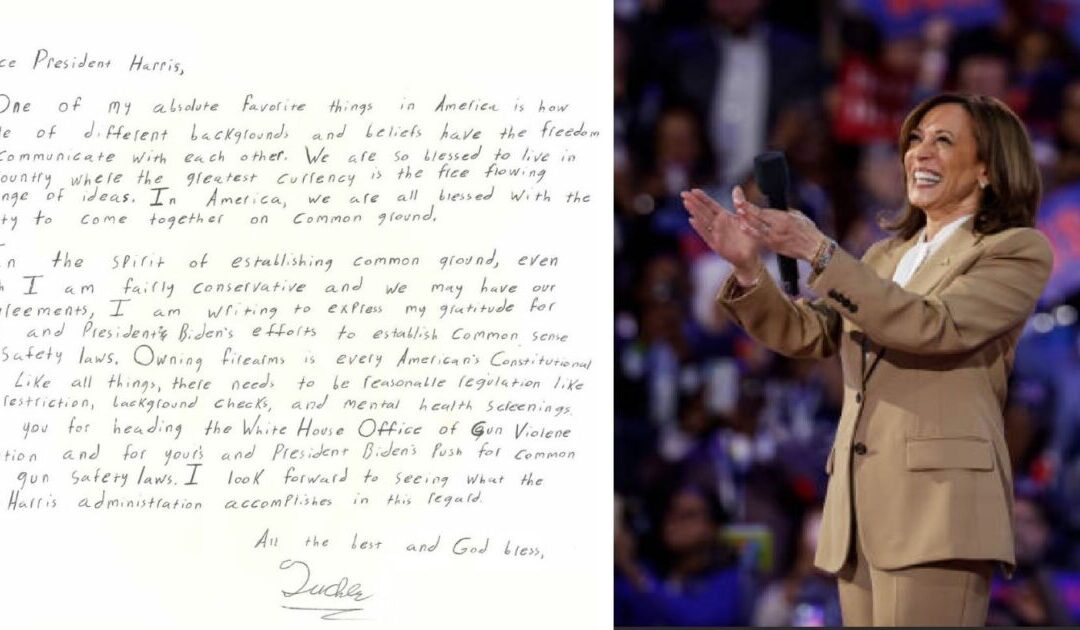 ce President Harris,
One of my absolute favorite things in America is how
le of different backgrounds and beliefs have the freedom
communicate with each other. We are so blessed to live in
ountry where the greatest currency is the free flowing
nge of ideas. In America, we are all blessed with the
ty to come together on common ground.
In the spirit of establishing common ground, even
h I am fairly conservative and we may have our
reements, I am writing to express my gratitude for
and President's Biden's efforts to establish common sense
safety laws. Owning firearms is every American's Constitutional
Like all things, there needs to be reasonable regulation like
restriction, background checks, and mental health screenings.
you for heading the White House Office of Gun Violene
tion and for your's and President Biden's Push for common
gun safety laws. I look forward to seeing what the
Harris administration accomplishes in this regard.
All the best and God bless,
Tucker